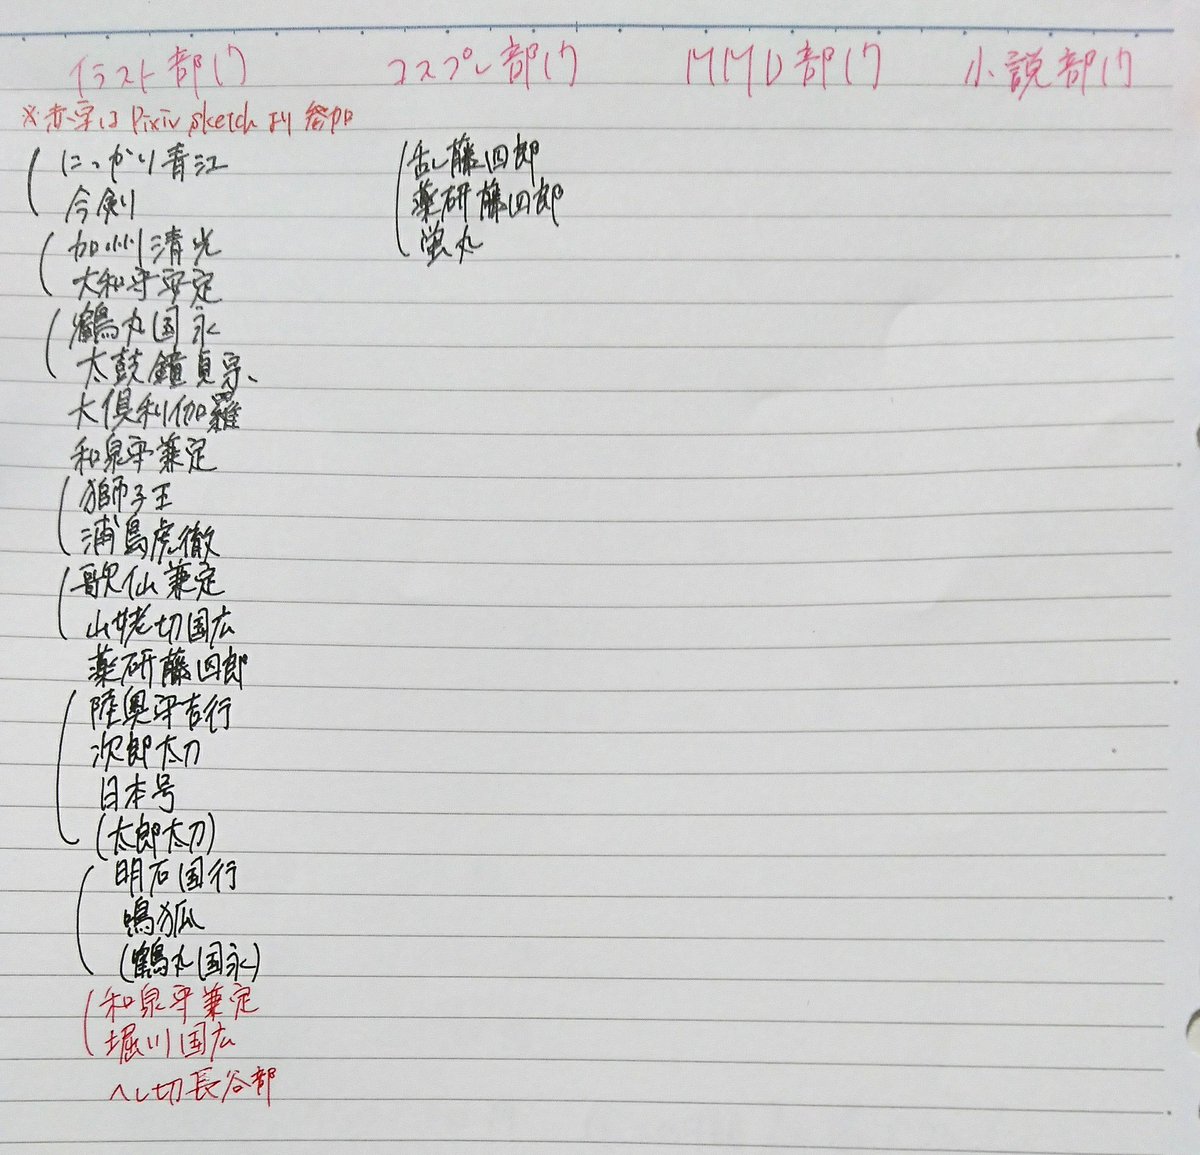 イラスト部門 コスプレ部門 MMD部門 小説部門
※赤字は Pixiv sketch より参加
にっかり青江
今剣
加州清光
大和守安定
鶴丸国永
太鼓鐘貞宗、
大倶利伽羅
和泉守兼定
獅子王
浦島虎徹
歌仙兼定
山姥切国広
薬研藤四郎
陸奥守吉行
次郎太刀
日本号
(太郎太刀)
明石国行
鳴狐
(鶴丸国永)
和泉守兼定
堀川国広
へし切長谷部
乱藤四郎
薬研藤四郎
蛍丸